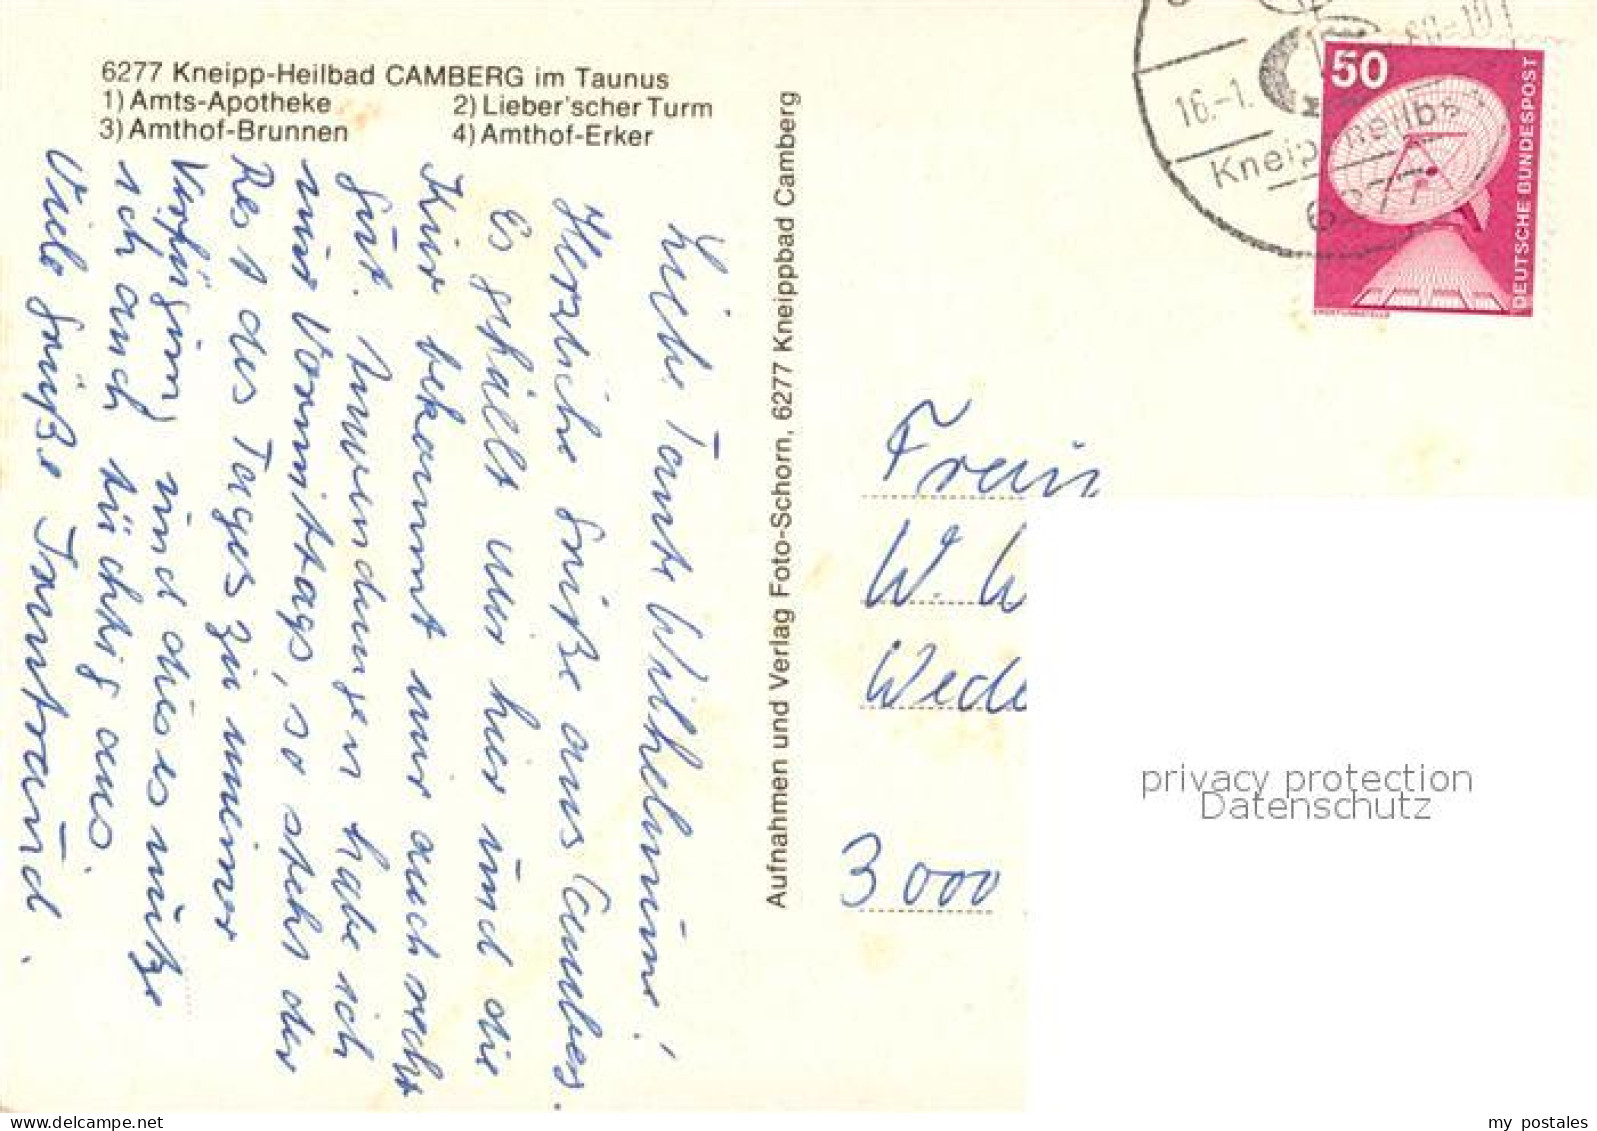 6277 Kneipp-Heilbad CAMBERG im Taunus
1) Amts-Apotheke 2) Lieber'scher Turm
3) Amthof-Brunnen 4) Amthof-Erker
Liebe Tante Wilhelmine!
Herzliche Grüße aus Camberg.
Es gefällt mir hier und die
Kur bekommt mir auch recht
gut. Anwendungen habe ich
nur Vormittags, so steht der
Rest des Tages zu meiner
Verfügung und dieses nutze
ich auch tüchtig aus.
Viele Grüße Irmtraud.
Aufnahmen und Verlag Foto-Schorn, 6277 Kneippbad Camberg
16.-1. 80-10
Kneippheilb
6277
50
DEUTSCHE BUNDESPOST
ERDFUNKSTELLE
Frau
W. W
Wede
3000
privacy protection
Datenschutz
delcampe.net
my_postales